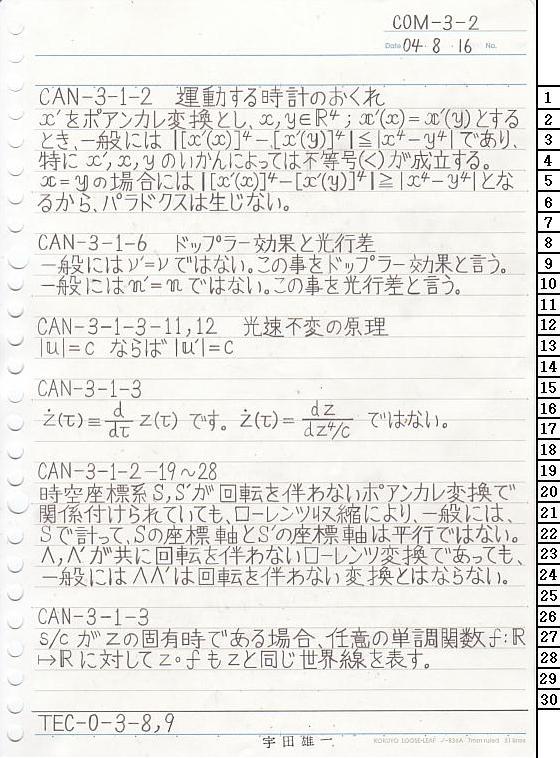 COM-3-2
Date 04・8・16 No.
CAN-3-1-2 運動する時計のおくれ
x′をポアンカレ変換とし、x, y∈ℝ⁴ ; x′(x) = x′(y)とする
とき、一般には |[x′(x)]⁴-[x′(y)]⁴|≦|x⁴-y⁴|であり、
特に x′, x, y のいかんによっては不等号(<)が成立する。
x=yの場合には|[x′(x)]⁴-[x′(y)]⁴|≧|x⁴-y⁴|とな
るから、パラドクスは生じない。
CAN-3-1-6 ドップラー効果と光行差
一般にはν′=νではない。この事をドップラー効果と言う。
一般には𝕟′=𝕟ではない。この事を光行差と言う。
CAN-3-1-3-11,12 光速不変の原理
|𝕦|=c ならば |𝕦′|=c
CAN-3-1-3
ż(τ)≡d/dτ z(τ) です。ż(τ)=dz/dz⁴/c ではない。
CAN-3-1-2-19~28
時空座標系S, S′が回転を伴わないポアンカレ変換で
関係付けられていても、ローレンツ収縮により、一般には、
Sで計って、Sの座標軸とS′の座標軸は平行ではない。
Λ, Λ′が共に回転を伴わないローレンツ変換であっても、
一般にはΛΛ′は回転を伴わない変換とはならない。
CAN-3-1-3
s/c がzの固有時である場合、任意の単調関数f:ℝ
↦ℝに対してz∘fもzと同じ世界線を表す。
TEC-0-3-8,9
宇田雄一
KOKUYO LOOSE-LEAF ノ-836A 7mm ruled 31 lines
1
2
3
4
5
6
7
8
9
10
11
12
13
14
15
16
17
18
19
20
21
22
23
24
25
26
27
28
29
30